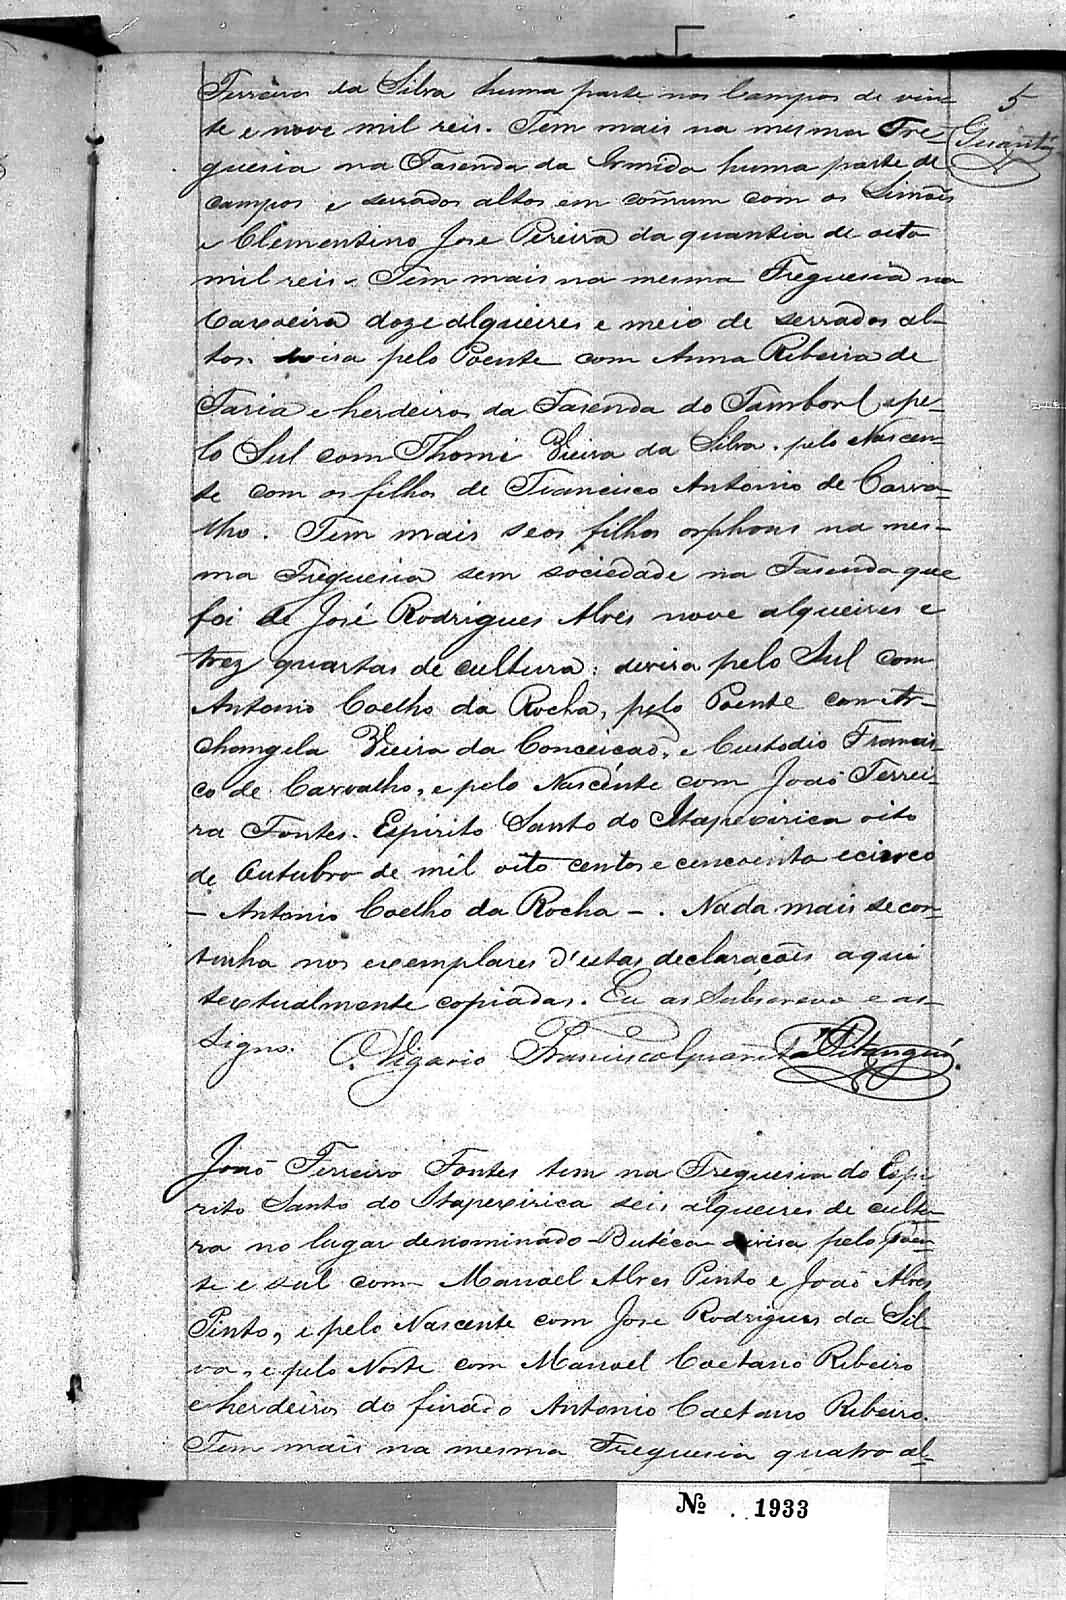 5
Guaritá
Ferreira da Silva huma parte nos Campos de vin-
te e nove mil reis. Tem mais na mesma Fre-
guesia na Fasenda da Ermida huma parte de
campos e serrados altos em com̃um com os Simões
e Clementino Jose Pereira da quantia de oito
mil reis. Tem mais na mesma Freguesia na
Caxoeira doze alqueires e meio de serrados al-
tos. devisa pelo Poente com Anna Ribeira de
Faria e herdeiros da Fasenda do Tamboril, pe-
lo Sul com Thomé Vieira da Silva, pelo Nascen-
te com os filhos de Francisco Antonio de Carva-
lho. Tem mais seos filhos orphons na mes-
ma Freguesia sem sociedade na Fasenda que
foi de José Rodrigues Alves nove alqueires e
trez quartas de cultura: devisa pelo Sul com
Antonio Coelho da Rocha, pelo Poente com Ar-
changela Vieira da Conceicaõ, e Custodio Francis-
co de Carvalho, e pelo Nascente com Joaõ Ferrei-
ra Fontes. Espirito Santo do Itapexirica oito
de Outubro de mil oito centos e cencoenta e cinco
- Antonio Coelho da Rocha -. Nada mais se con-
tinha nos exemplares d'estas declarações aqui
textualmente copiadas. Eu as Subscrevo e as-
signo. O Vigario Francisco Guaritá Pitangui.
Joaõ Ferreira Fontes tem na Freguesia do Espi
rito Santo do Itapexirica seis alqueires de cultu-
ra no lugar denominado - Butéca - devisa pelo Poen-
te e sul com Manoel Alves Pinto e Joaõ Alves
Pinto, e pelo Nascente com Jose Rodrigues da Sil-
va, e pelo Norte com Manoel Caetano Ribeiro
e herdeiros do finado Antonio Caetano Ribeiro.
Tem mais na mesma Freguesia quatro al-
№ 1933